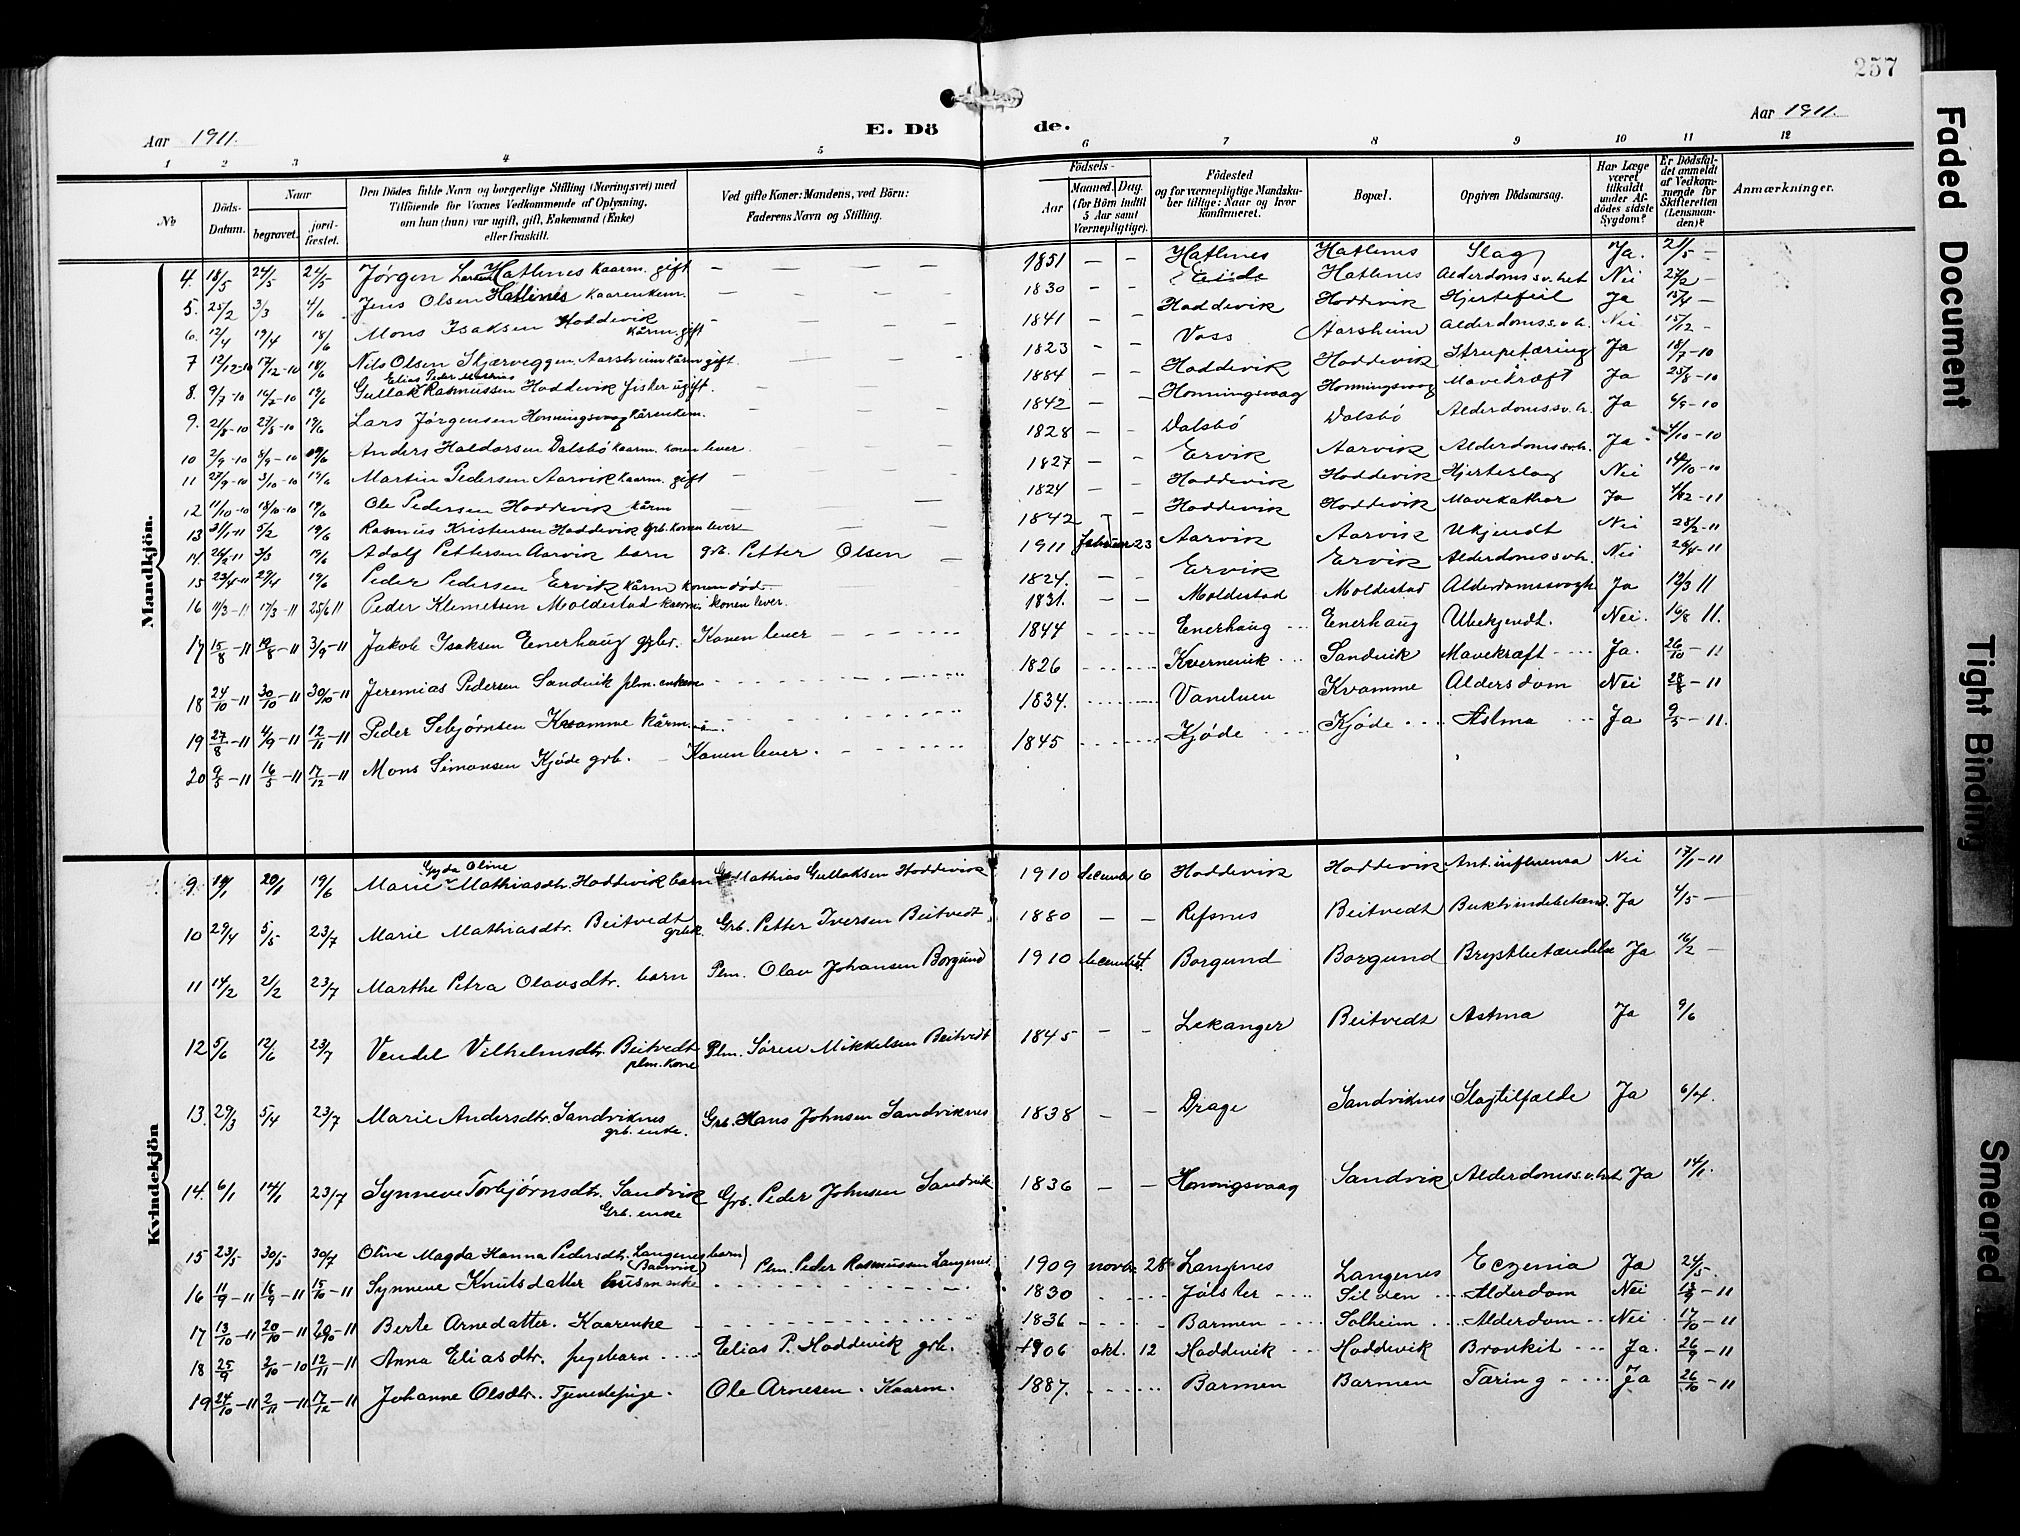 257
Aar 1911. E. Dö de. Aar 1911.
1 2 3 4 5 6 7 8 9 10 11 12
No
Döds-Datum.
Naar
begravet.
jord-fæstet.
Den Dödes fulde Navn og borgerlige Stilling (Næringsvei) med
Tilföiende for Voxnes Vedkommende af Oplysning,
om hun (hun) var ugift, gift, Enkemand (Enke)
eller fraskilt.
Ved gifte Koner: Mandens, ved Börn:
Faderens Navn og Stilling.
Födsels-
Aar
Maaned. Dag.
(for Börn indtil
5 Aar samt
Værnepligtige).
Födested
og for værnepligtige Mandska-
ber tillige: Naar og hvor
konfirmeret.
Bopæl.
Opgiven Dödsaarsag.
Har Læge
været
tilkaldt
under Af-
dödes sidste
Sygdom?
Er Dödsfal-
det anmeldt
af Vedkom-
mende for
Skifteretten
(Lensman-
den)?
Anmærkninger.
Mandkjön.
4. 18/5 24/5 24/5 Jørgen Larsen Hatlenes kaarm. gift — — — — 1851 — — Hatlenes Hatlenes Slag Ja. 21/5 —
5. 25/2 3/3 4/6 Jens Olsen Hatlenes kaarenkem. — — — — 1830 — — Eide Hatlenes Alderdomssv.het Nei 27/2 —
6. 12/4 19/4 18/6 Mons Isaksen Hoddevik kårm. gift — — — — 1841 — — Hoddevik Hoddevik Hjertefeil Ja 15/4 —
7 12/12-10 17/12-10 18/6 Nils Olsen Skjærveggen Aarsheim kårm gift. — — — 1823 — — Voss Aarsheim Alderdomssv.h. Nei 15/12 —
8. 9/7-10 14/7-10 19/6 Elias Peder Mathias Gullak Rasmussen Hoddevik fisker ugift. — — — 1884 — — Hoddevik Hoddevik Strupetæring Ja 18/7-10
9. 21/8-10 27/8-10 19/6 Lars Jørgensen Honningsvaag kårenkem. — — — 1842 — — Honningsvaag Honningsvaag Mavekræft Ja 25/8-10
10 2/9-10 8/9-10 19/6 Anders Haldorsen Dalsbø kaarm. konen lever. — — — 1828 — — Dalsbø Dalsbø Alderdomssv.h. Ja 6/9-10
11 27/9-10 3/10-10 19/6 Martin Pedersen Aarvik kaarm. gift — — — 1827 — — Ervik Aarvik Alderdomssv.h. Ja 4/10-10
12 11/10-10 18/10-10 19/6 Ole Pedersen Hoddevik kårm — — — 1824 — — Hoddevik Hoddevik Hjerteslag Nei 14/10-10
13 31/1-11 5/2 19/6 Rasmus Kristensen Hoddevik Grb. konen lever — — — 1842 — — Hoddevik Hoddevik Mavekathar Ja 4/2-11
14. 26/2-11 3/3 19/6 Adolf Pettersen Aarvik barn grb. Petter Olsen 1911 Februar 23 Aarvik Aarvik Ukjendt Nei 28/2-11
15 23/4-11 29/4 19/6 Peder Pedersen Ervik kårm konen død — — — 1824. — — Ervik Ervik Alderdomssv.h. Nei 26/4-11
16 11/3-11 17/3-11 25/6 11 Peder Klemetsen Moldestad kaarm. konen lever. 1831. — — Moldestad Moldestad Alderdomssvagh Ja 12/3 11
17 15/8-11 19/8-11 3/9-11 Jakob Isaksen Enerhaug grbr. Konen lever 1844 Enerhaug Enerhaug Ubekjendt. Nei. 16/8 11.
18 24/10-11 30/10-11 30/10-11 Jeremias Pedersen Sandvik plm. enkem 1826 Kvernevik Sandvik Mavekræft Ja. 26/10-11
19 27/8-11 4/9-11 12/11-11 Peder Sebjørnsen Kvamme kårm. 1834. Vanelven Kvamme Aldersdom Nei 28/8-11
20 9/5-11 16/5-11 17/12-11 Mons Simonsen Kjøde grb. — Konen lever. 1845 Kjøde Kjøde Astma Ja 9/5-11.
Kvindekjön
9. 14/1 20/1 19/6 Gyda Oline Marie Mathiasdtr. Hoddevik barn Grb Mathias Gullaksen Hoddevik 1910 decemb 6 Hoddevik Hoddevik Ant. influensa Nei 17/1-11
10 29/4 5/5 23/7 Marie Mathiasdtr. Beitvedt grbk. Grb. Petter Iversen Beitvedt. 1880 — — Refsnes Beitvedt Bukhindebetænd. Ja 4/5 —
11 14/2 2/2 23/7 Marthe Petra Olausdtr. barn Plm. Olav Johansen Borgund 1910 december Borgund Borgund Brystbetændelse Ja 16/2 —
12 5/6 12/6 23/7 Vendel Vilhelmsdtr. Beitvedt plm. kone Plm. Søren Mikkelsen Beitvedt 1845 — — Lekanger Beitvedt Astma Ja 9/6
13. 29/3 5/4 23/7 Marie Andersdtr. Sandviknes grb. enke. Grb. Hans Johnsen Sandviknes 1838 — — Drage Sandviknes Slagtilfælde Ja 6/4.
14. 6/1 14/1 23/7 Synneve Torbjørnsdtr. Sandvik Grb. enke Grb. Peder Johnsen Sandvik 1836 — — Honningsvaag Sandvik Alderdomss.v.het Ja 14/1.
15 23/5 30/5 30/7 Olive Magda Hanna Pedersdtr. Langenes barn (Baarvik) Plm. Peder Rasmussen Langenes. 1909 novbr. 28 Langenes Langenes Eczemia Ja 24/5.
16 11/9-11 16/9-11 15/10-11 Synneve Knutsdatter husm enke 1830 Jølster Silden Alderdom Nei 13/9-11
17 13/10-11 20/10-11 20/10-11 Berte Arnedatter. Kaarenke 1836 Barmen Solheim Alderdom Nei 17/10-11
18 25/9 2/10-10 12/11-11 Anna Eliasdtr. pigebarn Elias P. Hoddevik grb. 1906 okt. 12 Hoddevik Hoddevik Bronkit Ja. 26/9-11
19 24/10-11 2/11-11 17/12-11 Johanne Olsdtr. Tjenestepige. Ole Arnesen. Kaarm. 1887. Barmen Barmen Tæring Ja 26/10-11
Faded Document
Tight Binding
Smeared